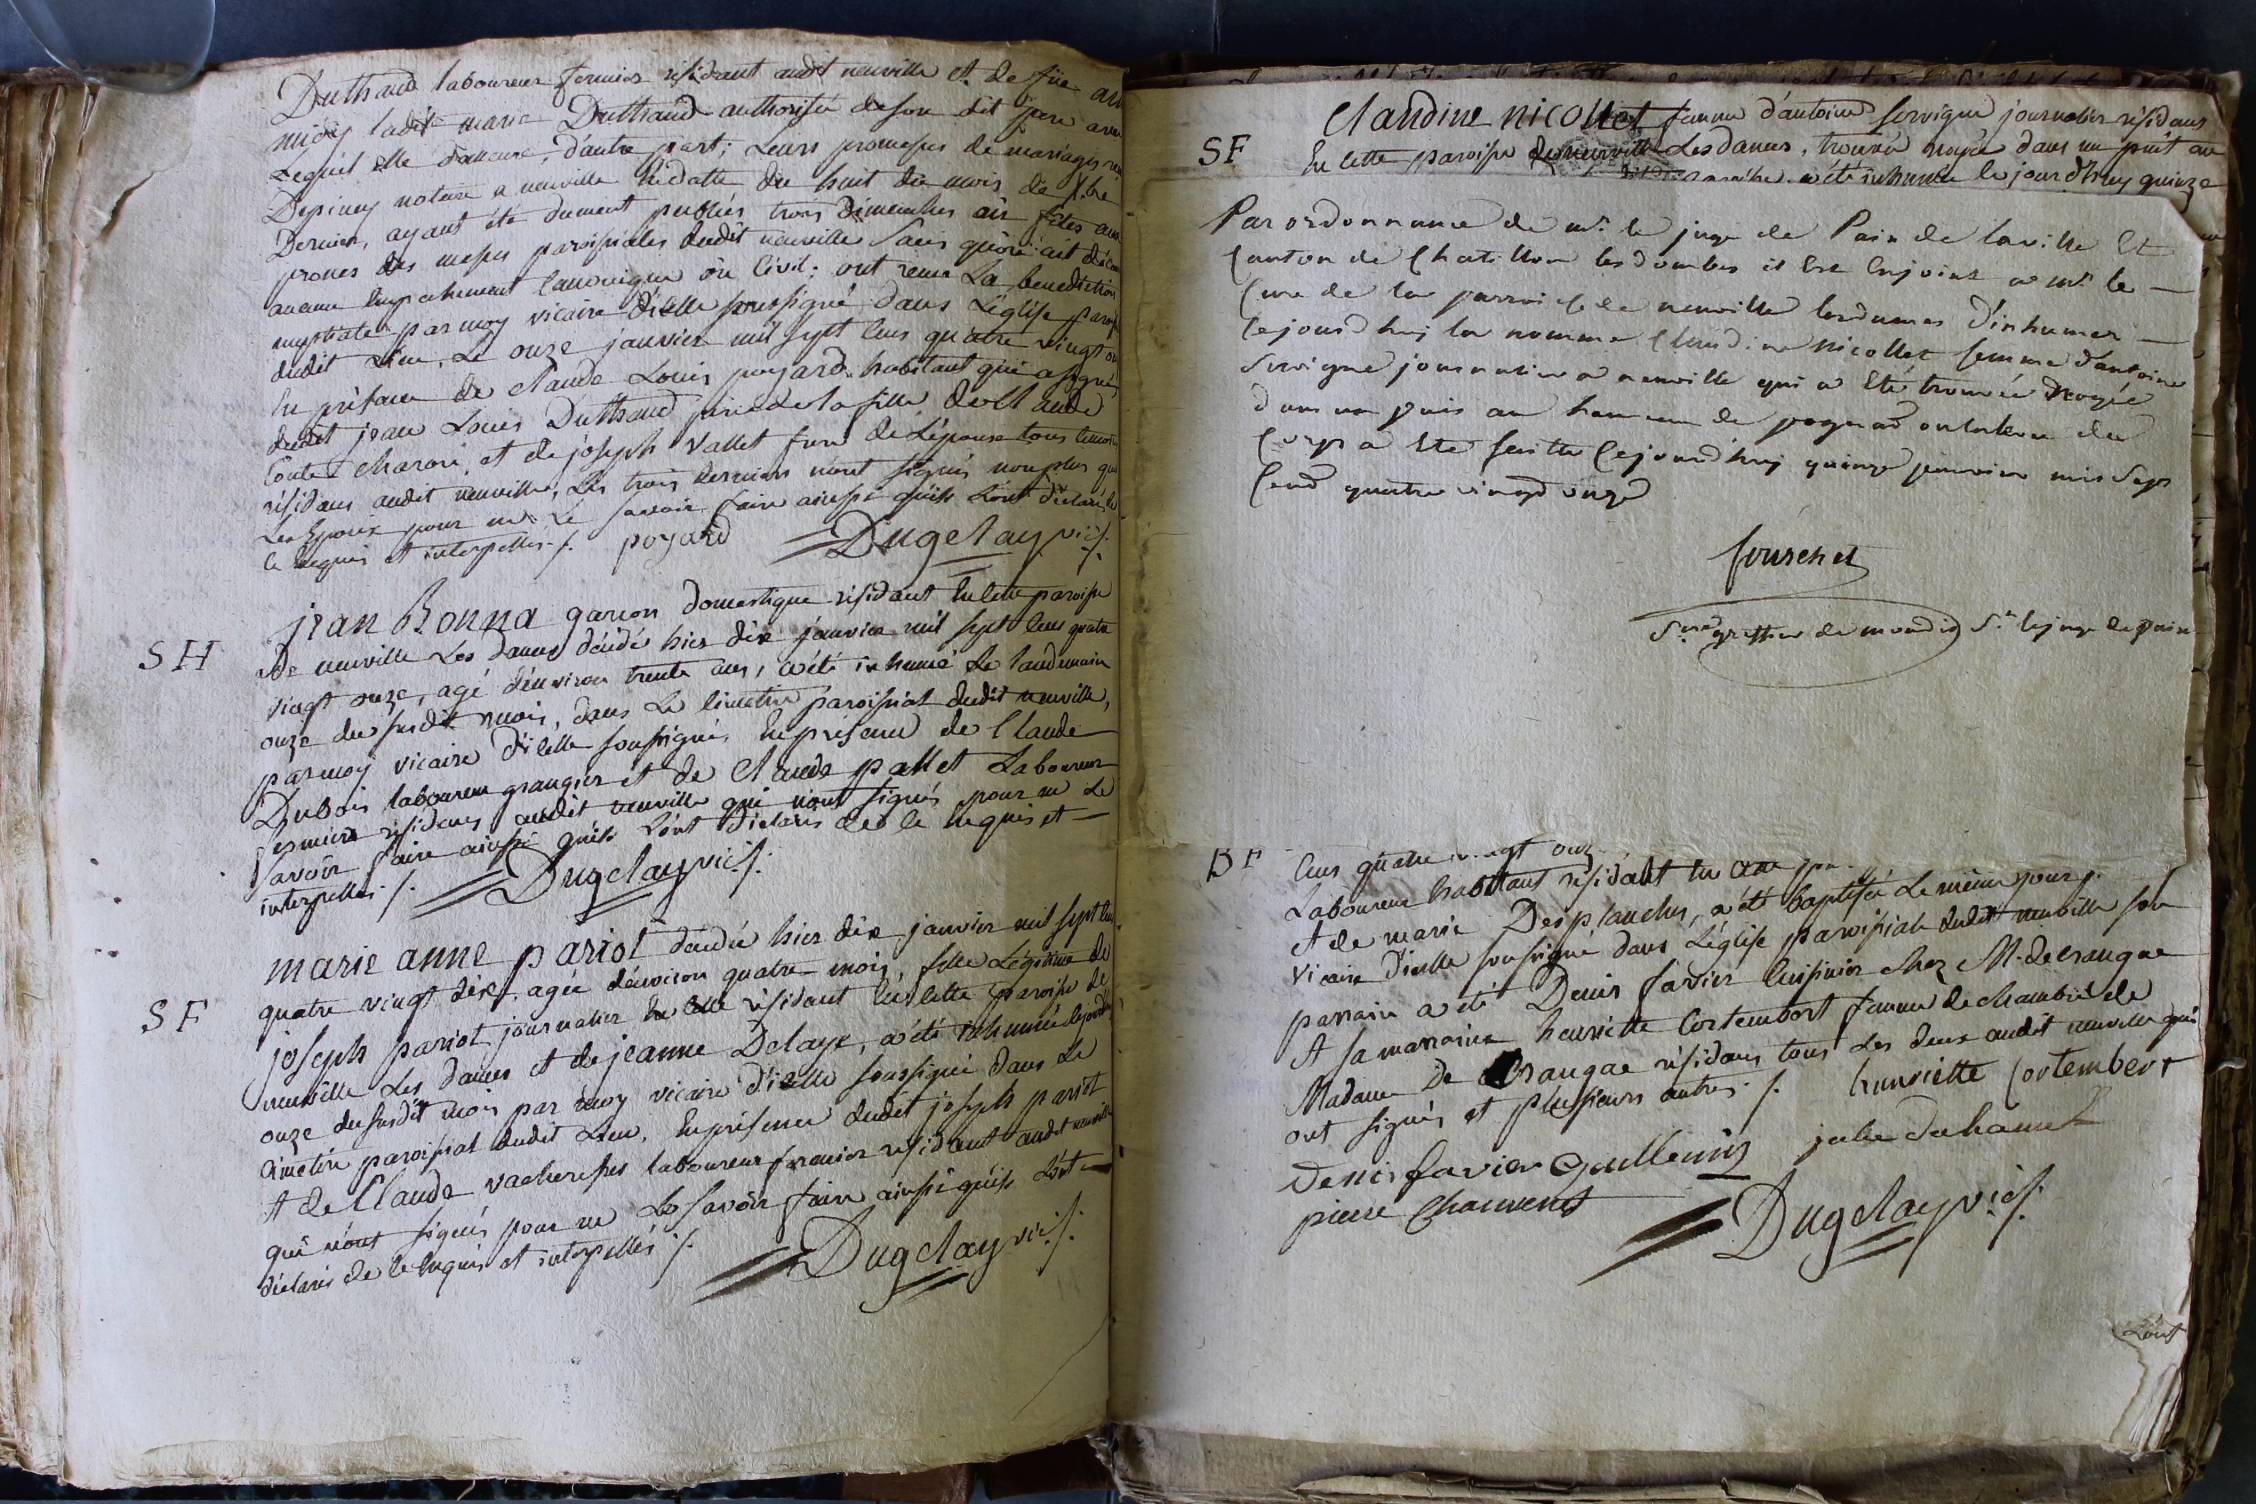 Duthaud laboureur fermier résidant audit neuville et de füe
midy ladite marie Duthaud authorisée de son dit pere avec
Lequel elle demeure, d'autre part; Leurs promesses de mariage
Depiney notaire a neuville En datte du huit du mois de Xbre
Dernier, ayant été dument publiés trois Dimenches où fêtes aux
prones des messes paroissiales dudit neuville sans qu'on ait
aucune Empechement Canonique où Civil; ont reçu La benediction
nuptiale par moy vicaire d'icelle soussigné dans L'église
dudit Lieu, Le onze janvier mil sept cens quatre vingt
En présence de Claude Louis poyard habitant qui a signé,
dudit jean Louis Duthaud pere de la fille de Claude
Conte Charoni, et de joseph vallet frere de L'épouse tous temoins
résidans audit neuville, Les trois derniers n'ont signés non plus que
Les Epoux pour ne Le savoir faire ainssi qu'ils L'ont déclarés de
ce Enquis et interpellés ./. poyard Dugelay vic./.
SH
jean Bonna garcon domestique résidant En cette paroisse
de neuville Les dames décédé hier dix janvier mil sept cens quatre
vingt onze, agé d'environ trente ans, a été inhumé Le landemain
onze du susdit mois, dans Le cimetiere paroissial dudit neuville,
par moy vicaire d'icelle soussigné, En présence de Claude
Dubois laboureur granger et de Claude pallet Laboureur
fermier résidans audit neuville qui n'ont signés pour ne Le
savoir faire ainssi qu'ils L'ont déclarés de ce Enquis et
interpellés ./. Dugelay vic./.
SF
marie anne pariot décédée hier dix janvier mil sept cens
quatre vingt dix, agée d'environ quatre mois, fille Légitime de
joseph pariot journalier En cette résidant En cette paroisse de
neuville Les dames et de jeanne Delaye, a été inhumée cejourdhuy
onze du susdit mois par moy vicaire d'icelle soussigné dans Le
cimetiere paroissial dudit Lieu, En présence dudit joseph pariot
et de Claude vacheresses laboureur fermier résidant audit neuville
qui n'ont signés pour ne Le savoir faire ainssi qu'ils L'ont
déclarés de ce Enquis et interpellés ./. Dugelay vic./.
SF
Claudine nicollet femme d'antoine servigne journalier résidans
En cette paroisse de neuville Les dames, trouvée noyée dans un puit au
a été inhumée le jourd'huy quinze
Par ordonnance de mr. le juge de Paix de la ville Et
Canton de Chatillon les dombes il Est Enjoint a mr. le
Cure de la parroisse de neuville les dames d'inhumer
Cejourd'huy la nommé Claudine nicollet femme d'antoine
Servigne journalier a neuville qui a Eté trouvée noyée
dans un puis au hameau de
Corps a Eté faitte Cejourd'huy quinze janvier mis Sept
Cend quatre vingd onze
sre greffier de mondit Sr. le juge de paix
BF
Cens quatre vingt onz
Laboureur habitant résidant En cette
et de marie Desplanches, a été baptisée Le même jour
vicaire d'icelle soussigné dans L'église paroissiale dudit neuville son
parrain a été Denis favier Cuisinier chez M. de
et sa marraine henriette Cortembert femme de chambre de
Madame De résidans tous Les deux audit neuville qui
ont signés et plussieurs autres ./. henriette Cortembert
Denis favier Goullemin
pierre Dugelay vic./.
L'ont